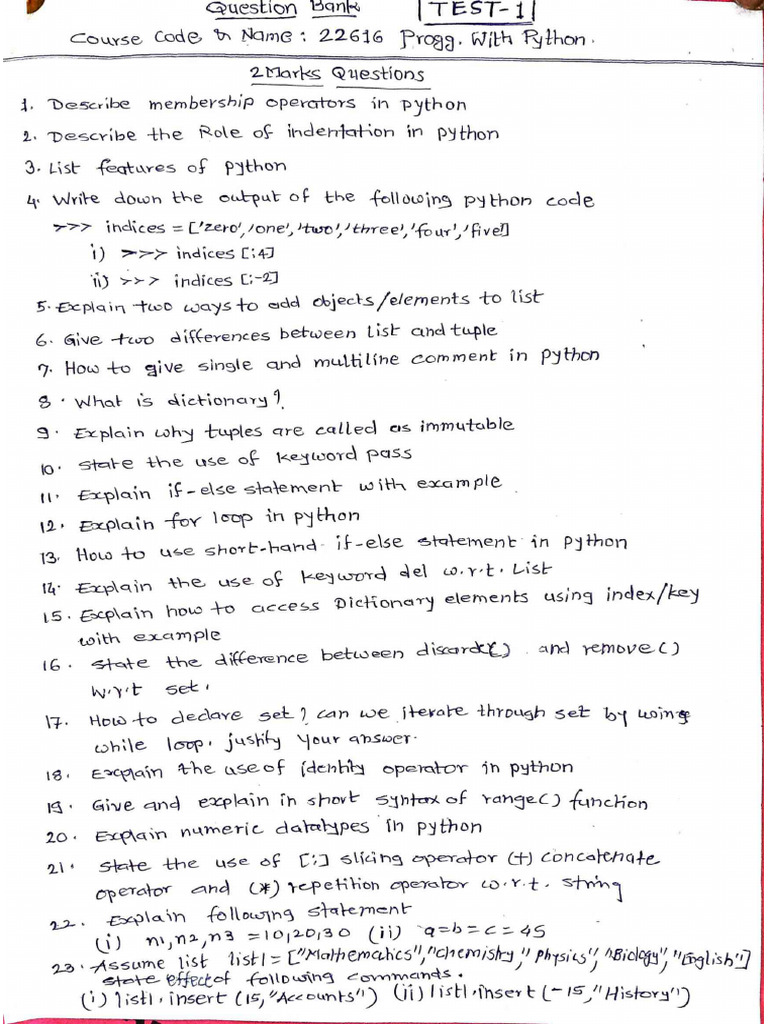 Question Bank TEST-1
Course Code & Name: 22616 Progg. With Python.
2 Marks Questions
1. Describe membership operators in python
2. Describe the Role of indentation in python
3. List features of python
4. Write down the output of the following python code
>>> indices = ['zero','one','two','three','four','five']
i) >>> indices [:4]
ii) >>> indices [:-2]
5. Explain two ways to add objects/elements to list
6. Give two differences between list and tuple
7. How to give single and multiline comment in python
8. What is dictionary?
9. Explain why tuples are called as immutable
10. State the use of keyword pass
11. Explain if-else statement with example
12. Explain for loop in python
13. How to use short-hand if-else statement in python
14. Explain the use of keyword del w.r.t. List
15. Explain how to access Dictionary elements using index/key
with example
16. State the difference between discard() and remove()
w.r.t set.
17. How to declare set? can we iterate through set by using
while loop, justify your answer.
18. Explain the use of identity operator in python
19. Give and explain in short syntax of range() function
20. Explain numeric datatypes in python
21. State the use of [:] slicing operator (+) concatenate
operator and (*) repetition operator w.r.t. string
22. Explain following statement
(i) n1,n2,n3 = 10,20,30 (ii) a=b=c=45
23. Assume list list1= ["Mathematics","chemistry","Physics","Biology","English"]
state effect of following commands.
(i) list1.insert (15,"Accounts") (ii) list1.insert (-15,"History")